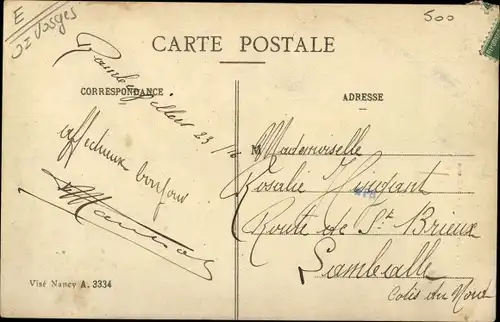 E
02 Vosges
500
CARTE POSTALE
CORRESPONDANCE
ADRESSE
Rambervillers 23
affectueux bonjour
M Mademoiselle
Rosalie
Route de St Brieux
Lamballe
Cotes du Nord
Visé Nancy A. 3334